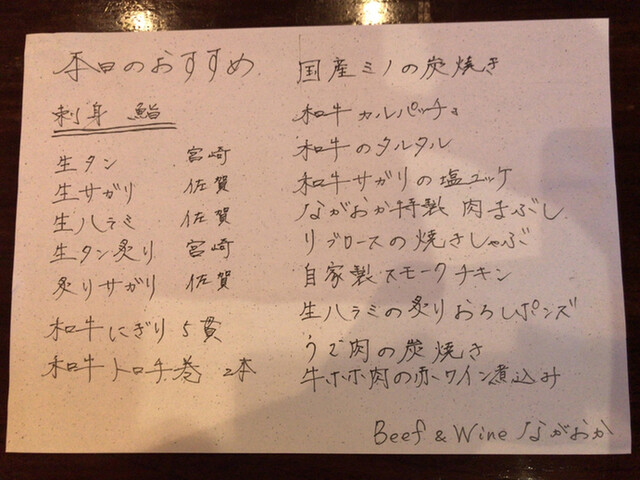 本日のおすすめ
刺身 鮨
生タン 宮崎
生サガリ 佐賀
生ハラミ 佐賀
生タン炙り 宮崎
炙りサガリ 佐賀
和牛にぎり 5貫
和牛トロチ巻 2本
国産ミノの炭焼き
和牛カルパッチョ
和牛のタルタル
和牛サガリの塩ユッケ
ながおか特製 肉まぶし
リブロースの焼きしゃぶ
自家製スモークチキン
生ハラミの炙りおろしポンズ
うで肉の炭焼き
牛ホホ肉の赤ワイン煮込み
Beef & Wine ながおか